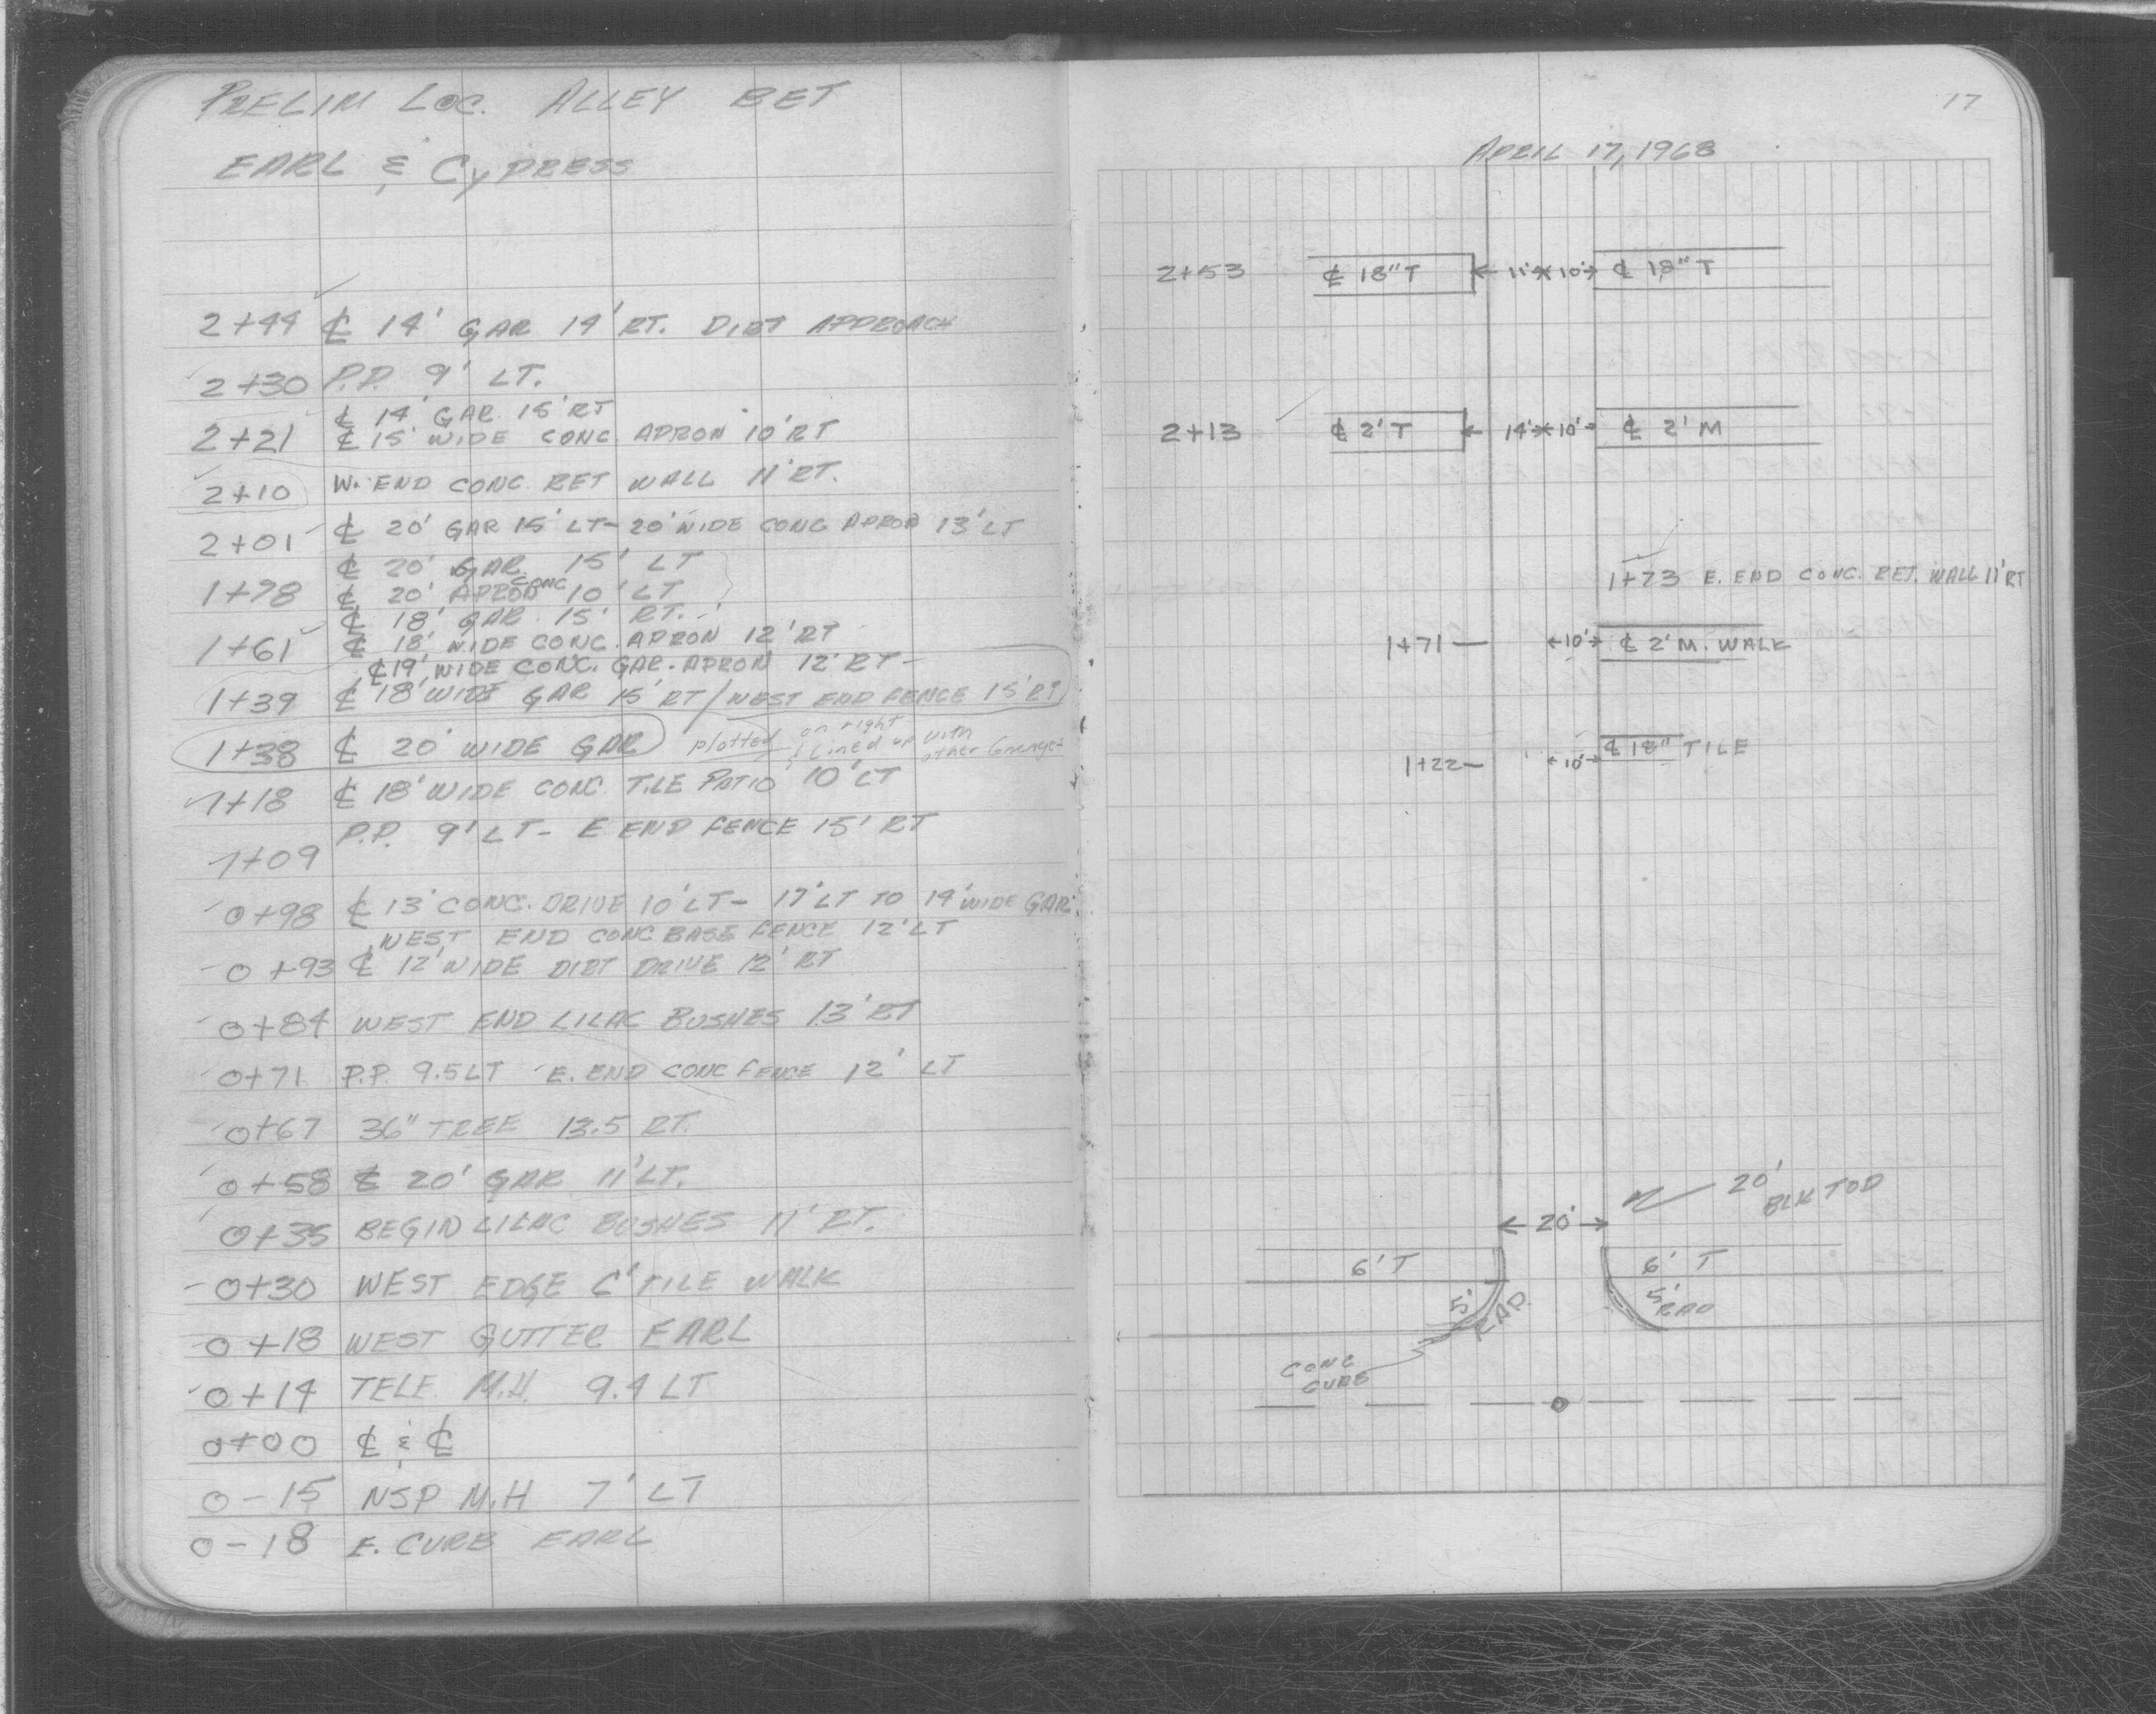 PRELIM LOC. ALLEY BET
EARL & CYPRESS
2+44 ℄ 14' GAR 14' RT. DIRT APPROACH
2+30 P.P. 9' LT.
℄ 14' GAR. 15' RT
2+21 ℄ 15' WIDE CONC. APRON 10' RT
2+10 W. END CONC. RET WALL 11' RT.
2+01 ℄ 20' GAR 15' LT - 20' WIDE CONC APRON 13' LT
℄ 20' GAR. 15' LT
1+78 ℄ 20' APRON CONC 10' LT
℄ 18' GAR. 15' RT.
1+61 ℄ 18' WIDE CONC. APRON 12' RT
℄ 19' WIDE CONC. GAR. APRON 12' RT
1+39 ℄ 18' WIDE GAR 15' RT / WEST END FENCE 15' RT
1+38 ℄ 20' WIDE GAR plotted on right
& lined up with
other Garages
1+18 ℄ 18' WIDE CONC. TILE PATIO 10' LT
1+09 P.P. 9' LT - E END FENCE 15' RT
0+98 ℄ 13' CONC. DRIVE 10' LT - 17' LT TO 14' WIDE GAR.
WEST END CONC BASE FENCE 12' LT
0+93 ℄ 12' WIDE DIRT DRIVE 12' RT
0+84 WEST END LILAC BUSHES 13' RT
0+71 P.P. 9.5 LT E. END CONC FENCE 12' LT
0+67 36" TREE 13.5 RT.
0+58 ℄ 20' GAR 11' LT.
0+35 BEGIN LILAC BUSHES 11' RT.
0+30 WEST EDGE 6' TILE WALK
0+18 WEST GUTTER EARL
0+14 TELE. M.H. 9.4 LT
0+00 ℄ & ℄
0-15 NSP M.H 7' LT
0-18 E. CURB EARL
17
APRIL 17, 1968
2+53 ℄ 18" T 11' 10' ℄ 18" T
2+13 ℄ 2' T 14' 10' ℄ 2' M
1+73 E. END CONC. RET. WALL 11' RT
1+71 10' ℄ 2' M. WALK
1+22 10' ℄ 18" TILE
20' BLK TOP
20'
6' T 6' T
5' RAD. 5' RAD
CONC
CURB